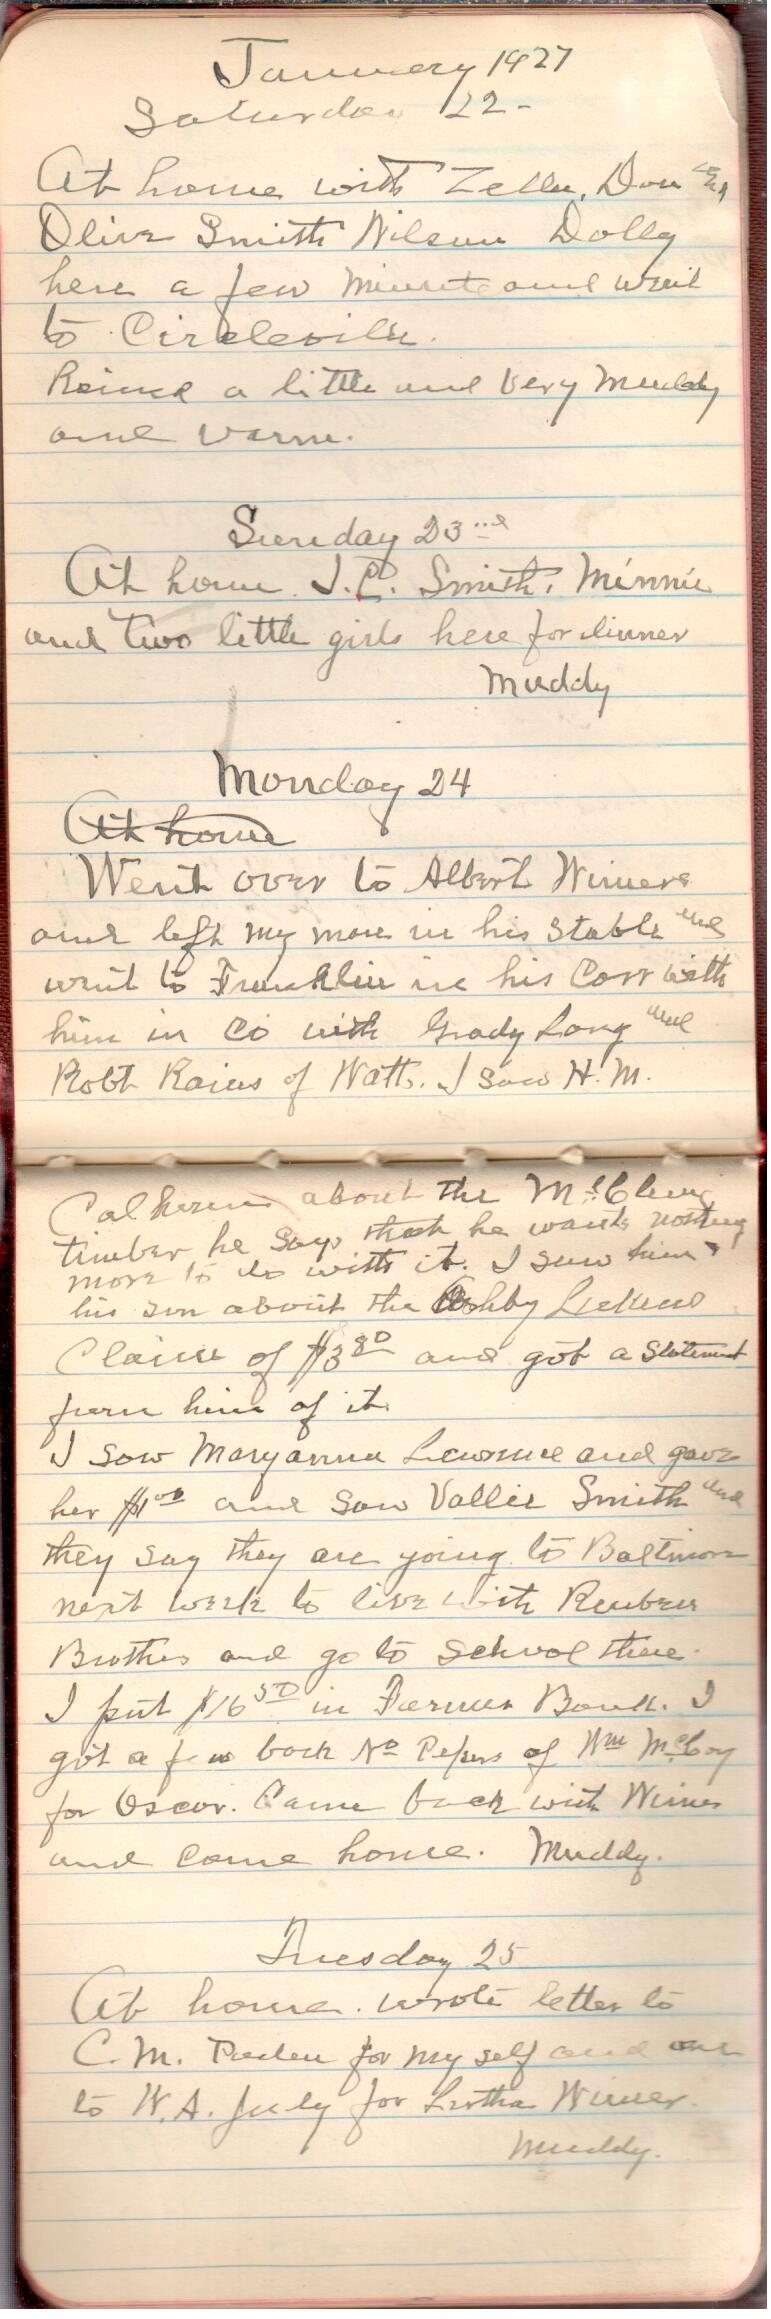 January 1927
Saturday 22-
At home with Zella, Don &
Olive Smith Nilson Dolly
here a few minute and went
to Circleville.
Rained a little and very muddy
and warm.
Sunday 23rd
At home. J.C. Smith, Minnie
and two little girls here for dinner
Muddy
Monday 24
At home
Went over to Albert Wimers
and left my mare in his stable and
went to Franklin in his Carr with
him in Co with Grady Long and
Robt Rains of Watts. I saw H.M.
Calhoun about the McClung
timber he says that he wants nothing
more to do with it. I saw him &
his son about the Ashby
Claim of $3 and got a Statement
from him of it.
I saw Maryanna and gave
her $1 00 and saw Vallie Smith and
they say they are going to Baltimore
next week to live with Reuben
Brothers and go to school there.
I put $16 50 in Farmers Bank. I
got a few back No Pepers of Wm McCoy
for Oscar. Came back with Wimer
and come home. Muddy.
Tuesday 25
At home. wrote letter to
C.M. for my self and one
to W.A. July for Wimer.
Muddy.